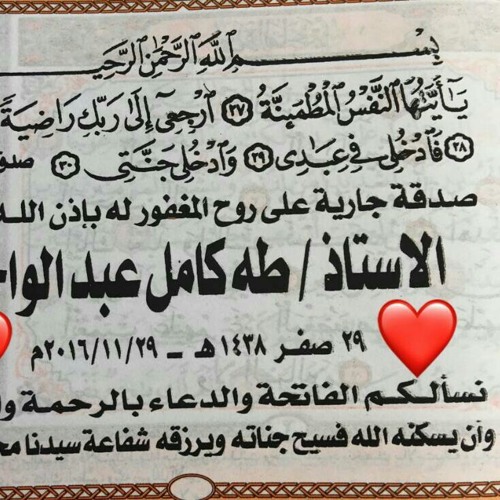 بِسْمِ ٱللَّهِ ٱلرَّحْمَٰنِ ٱلرَّحِي
يَٰٓأَيَّتُهَا ٱلنَّفْسُ ٱلْمُطْمَئِنَّةُ ٢٧ ٱرْجِعِىٓ إِلَىٰ رَبِّكِ رَاضِيَةً
٢٨ فَٱدْخُلِى فِى عِبَٰدِى ٢٩ وَٱدْخُلِى جَنَّتِى ٣٠
صدقة جارية على روح المغفور له بإذن الله
الاستاذ / طه كامل عبد
٢٩ صفر ١٤٣٨ هـ ـ ٢٠١٦/١١/٢٩م
نسألكم الفاتحة والدعاء بالرحمة
وأن يسكنه الله فسيح جناته ويرزقه شفاعة سيدنا